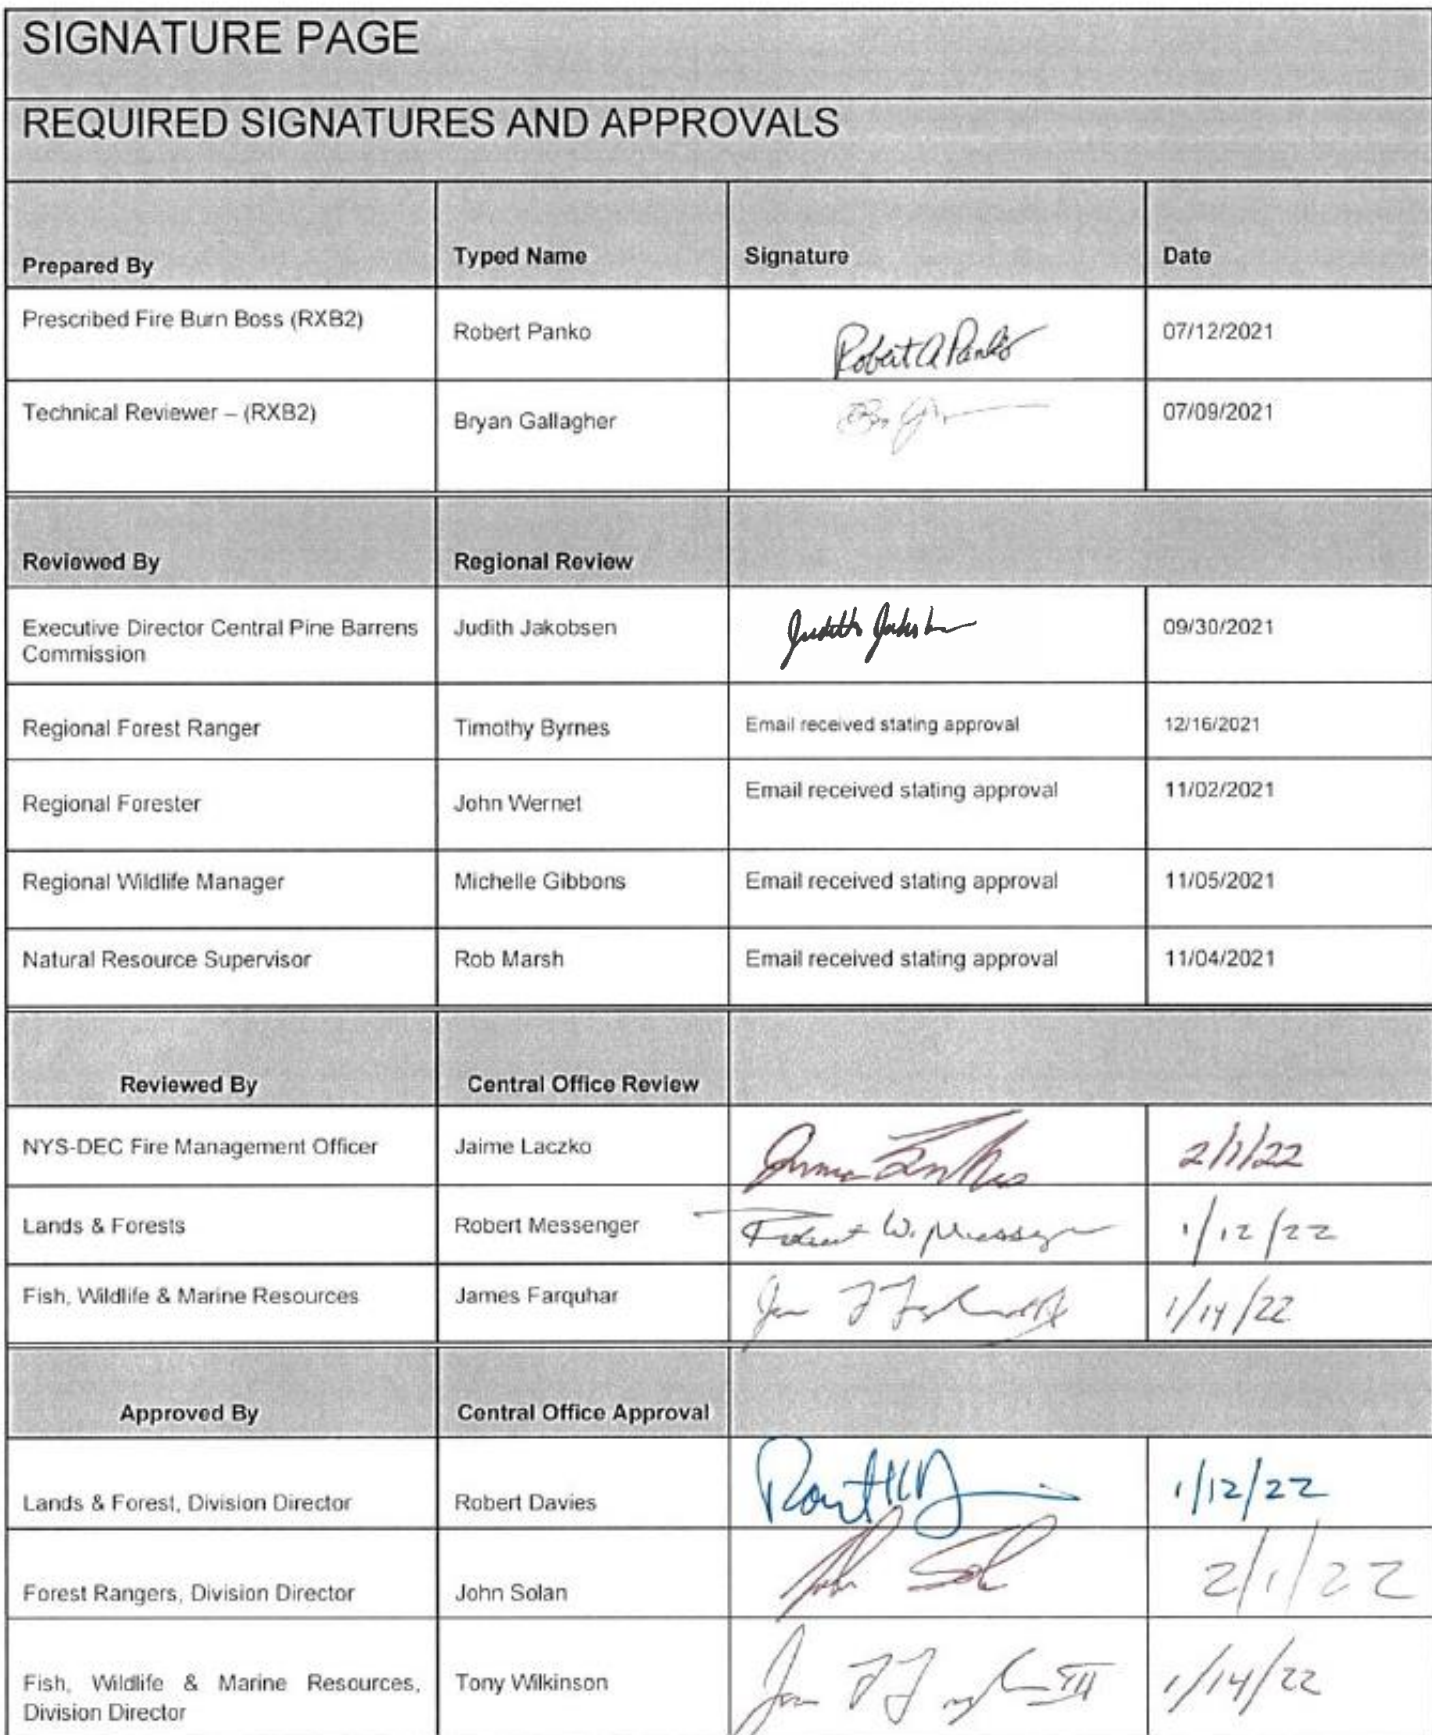 SIGNATURE PAGE
REQUIRED SIGNATURES AND APPROVALS
Prepared By Typed Name Signature Date
Prescribed Fire Burn Boss (RXB2) Robert Panko Robert A Panko 07/12/2021
Technical Reviewer – (RXB2) Bryan Gallagher 07/09/2021
Reviewed By Regional Review
Executive Director Central Pine Barrens
Commission Judith Jakobsen Judith Jakobsen 09/30/2021
Regional Forest Ranger Timothy Byrnes Email received stating approval 12/16/2021
Regional Forester John Wernet Email received stating approval 11/02/2021
Regional Wildlife Manager Michelle Gibbons Email received stating approval 11/05/2021
Natural Resource Supervisor Rob Marsh Email received stating approval 11/04/2021
Reviewed By Central Office Review
NYS-DEC Fire Management Officer Jaime Laczko 2/1/22
Lands & Forests Robert Messenger Robert W. Messenger 1/12/22
Fish, Wildlife & Marine Resources James Farquhar 1/14/22
Approved By Central Office Approval
Lands & Forest, Division Director Robert Davies 1/12/22
Forest Rangers, Division Director John Solan 2/1/22
Fish, Wildlife & Marine Resources,
Division Director Tony Wilkinson 1/14/22